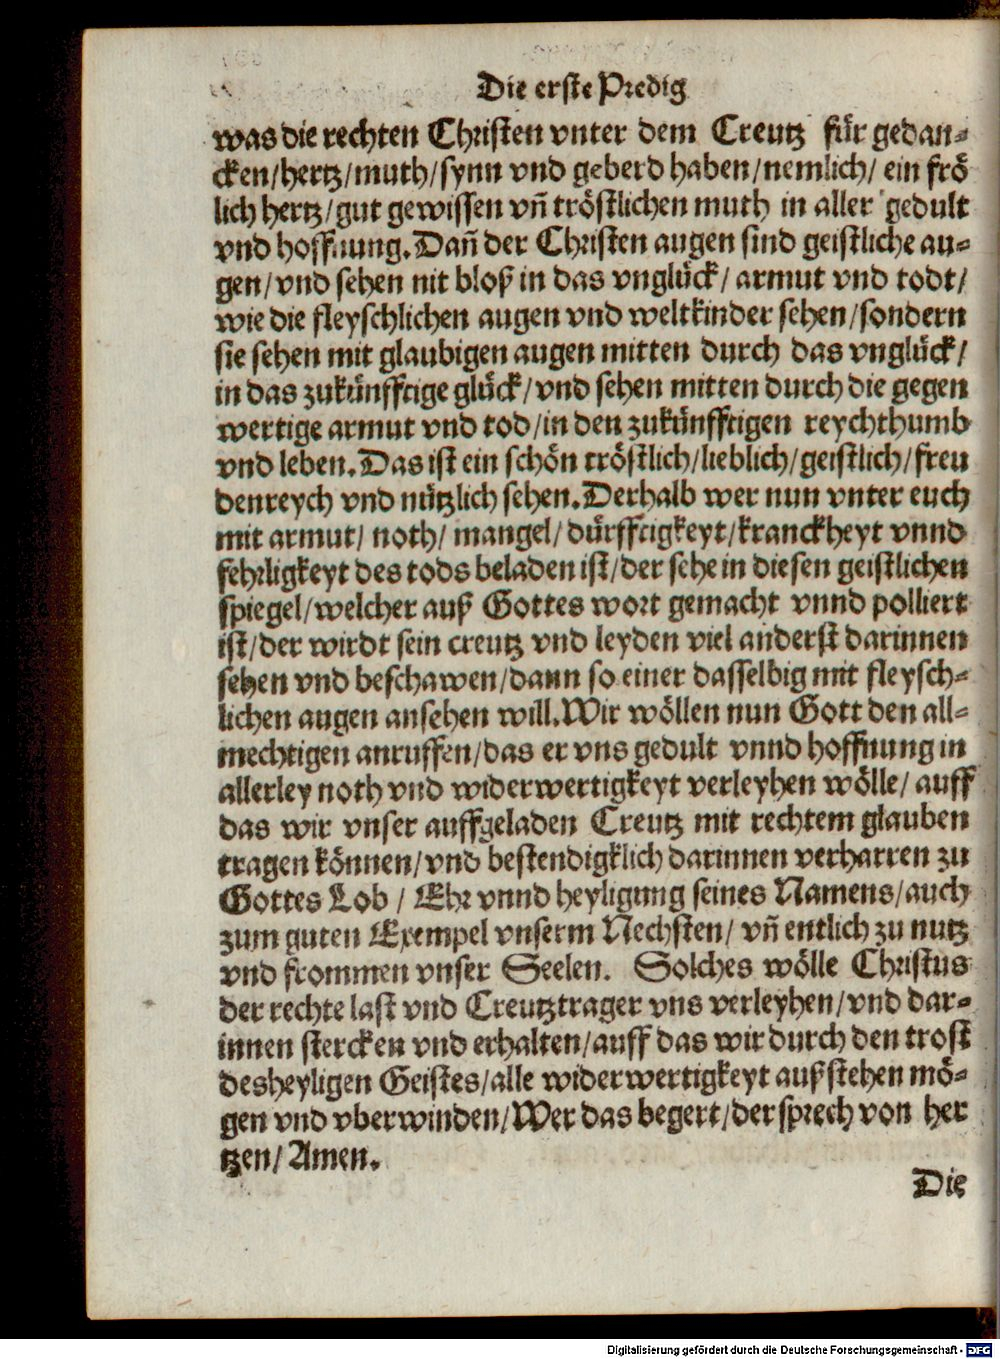 Die erste Predig
was die rechten Christen vnter dem Creutz für gedan-
cken/hertz/muth/synn vnd geberd haben/nemlich/ ein frö
lich hertz/gut gewissen vñ tröstlichen muth in aller gedult
vnd hoffnung. Dañ der Christen augen sind geistliche au-
gen/vnd sehen nit bloß in das vnglück/ armut vnd todt/
wie die fleyschlichen augen vnd weltkinder sehen/sondern
sie sehen mit glaubigen augen mitten durch das vnglück/
in das zukünfftige glück/vnd sehen mitten durch die gegen
wertige armut vnd tod/in den zukünfftigen reychthumb
vnd leben. Das ist ein schön tröstlich/lieblich/geistlich/freu
denreych vnd nützlich sehen. Derhalb wer nun vnter euch
mit armut/ noth/ mangel/ dürfftigkeyt/kranckheyt vnnd
fehrligkeyt des tods beladen ist/der sehe in diesen geistlichen
spiegel/welcher auß Gottes wort gemacht vnnd polliert
ist/der wirdt sein creutz vnd leyden viel anderst darinnen
sehen vnd beschawen/dann so einer dasselbig mit fleysch-
lichen augen ansehen will. Wir wöllen nun Gott den all-
mechtigen anruffen/das er vns gedult vnnd hoffnung in
allerley noth vnd widerwertigkeyt verleyhen wölle/ auff
das wir vnser auffgeladen Creutz mit rechtem glauben
tragen können/vnd bestendigklich darinnen verharren zu
Gottes Lob / Ehr vnnd heyligung seines Namens/auch
zum guten Exempel vnserm Nechsten/ vñ entlich zu nutz
vnd frommen vnser Seelen. Solches wölle Christus
der rechte last vnd Creutztrager vns verleyhen/vnd dar-
innen stercken vnd erhalten/auff das wir durch den trost
des heyligen Geistes/alle widerwertigkeyt außstehen mö-
gen vnd vberwinden/Wer das begert/der sprech von her
tzen/ Amen.
Die
Digitalisierung gefördert durch die Deutsche Forschungsgemeinschaft - DFG